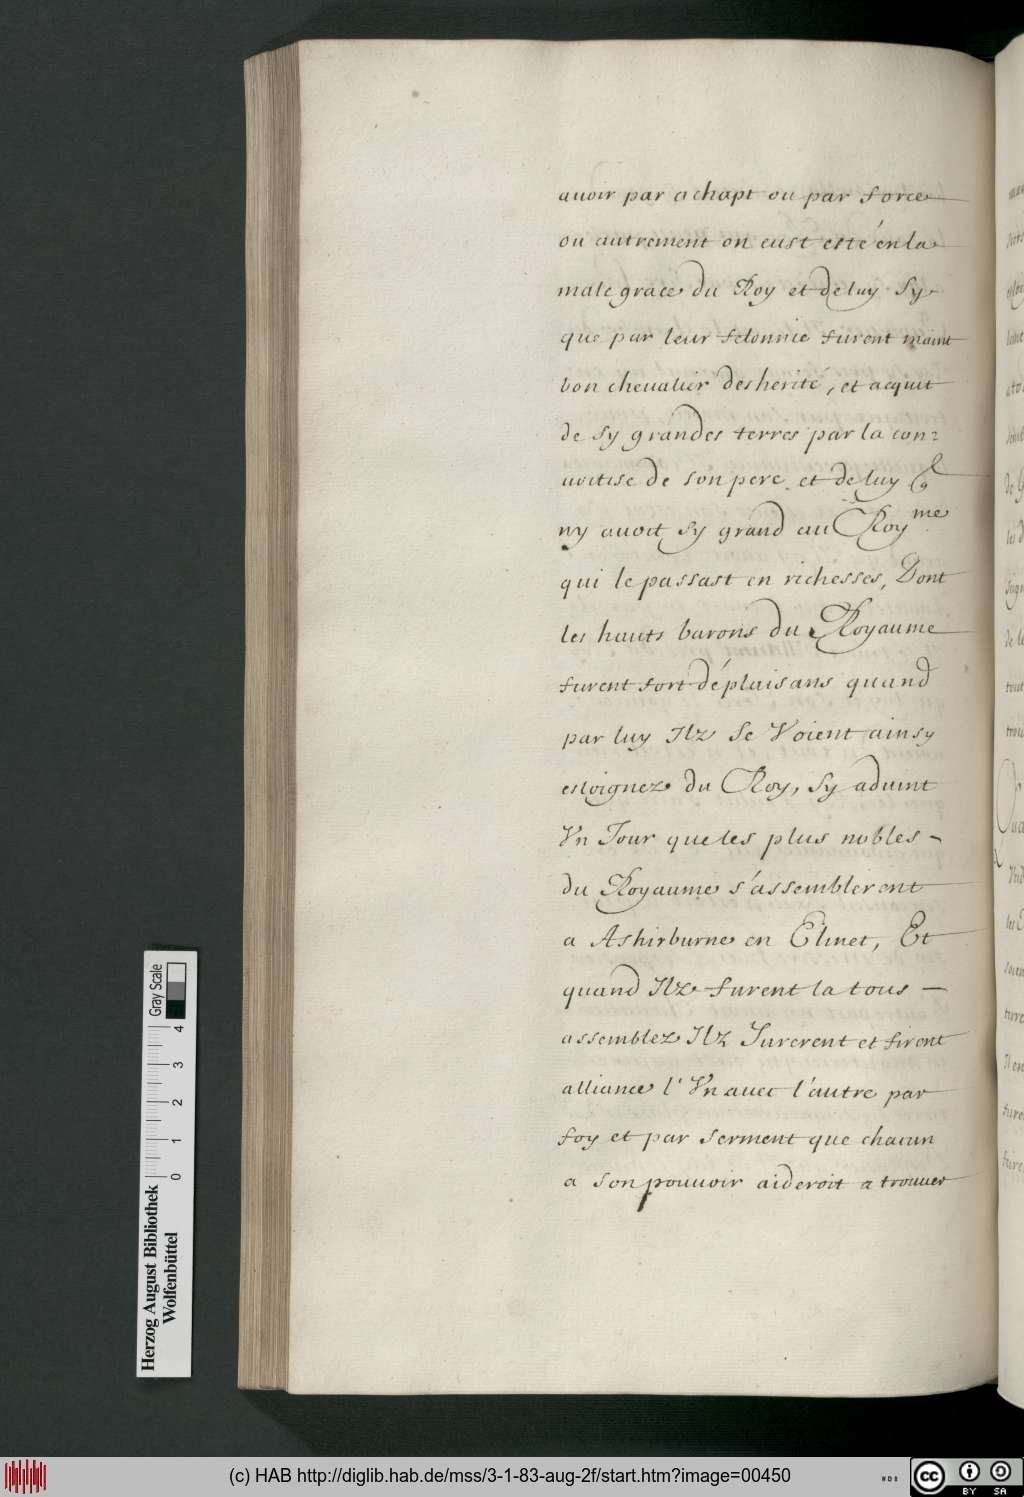 auoir par achapt ou par force
ou autrement on eust esté en la
male grace du Roy et de luy Sy
que par leur felonnie furent maint
bon cheualier desherité, et acquit
de sy grandes terres par la con=
uoitise de son pere et de luy Et
ny auoit sy grand au Roy me
qui le passast en richesses, Dont
les hauts barons du Royaume
furent fort déplaisans quand
par luy Ilz se Voient ainsy
esloignez du Roy, Sy aduint
Vn Jour que les plus nobles -
du Royaume s'assemblerent
a Ashirburne en Elinet, Et
quand Ilz furent la tous -
assemblez Ilz Jurerent et firent
alliance l'Vn auec l'autre par
foy et par serment que chacun
a son pouuoir aideroit a trouuer
Herzog August Bibliothek
Wolfenbüttel
0 1 2 3 4
Gray Scale
(c) HAB http://diglib.hab.de/mss/3-1-83-aug-2f/start.htm?image=00450
WDB
cc BY SA